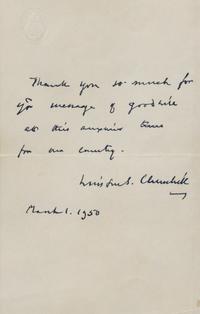 Thank you so much for
yr message of goodwill
at this anxious time
for our country.
Winston S. Churchill
March 1. 1950